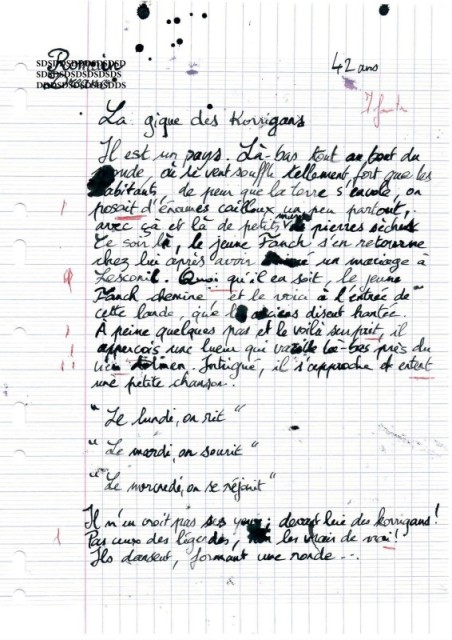 SDSDSDSDSDSDSD
Romain 42 ans
SDSDSDSDSDSDS
DDSDSDSDSDSDDS
La gigue des Korrigans
Il est un pays. Là-bas tout au bout du
monde, où le vent souffle tellement fort que les
habitants de peur que la terre s'envole, on
posait d'énormes cailloux un peu partout,
avec çà et là de petits murs de pierres sèches
Ce soir là, le jeune Fanch s'en retourne
chez lui après avoir un mariage à
Lesconil. Quoi qu'il en soit, le jeune
Fanch chemine et le voici à l'entrée de
cette lande, que les anciens disent hantée.
A peine quelques pas et le voilà surpait, il
apperçois une lueur qui vacille là-bas près du
dolmen. Intrigué, il s'approche et entent
une petite chanson.
" Le lundi, on rit "
" Le mardi, on sourit "
" Le mercredi, on se réjouit "
Il n'en croit pas ses yeux ; devant lui des korrigans !
Pas ceux des légendes, les vrais de vrai !
Ils dansent, formant une ronde ...